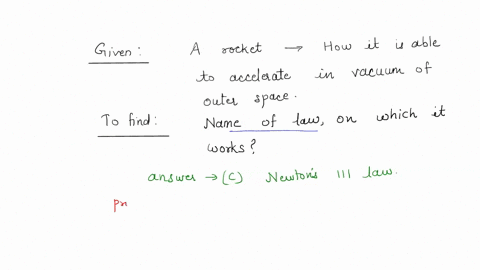 Given: A rocket → How it is able
to accelerate in vacuum of
outer space.
To find: Name of law, on which it
works?
answer → (C) Newton's III law.
pr